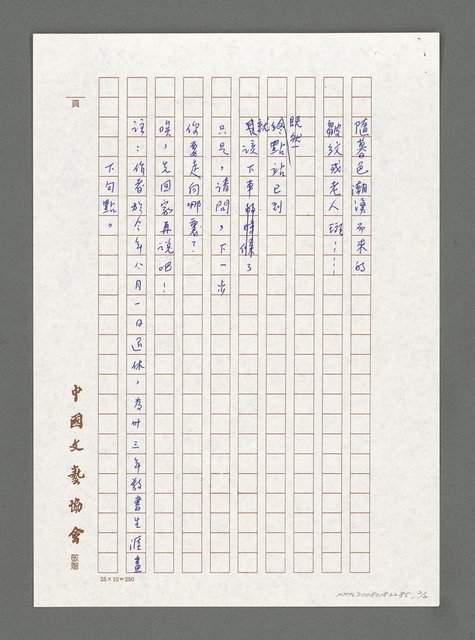 隨暮色潮湧而來的
皺紋或老人斑……
既然一
終點站已到
就該下車的時候了
只是，請問，下一步
你要走向哪裏？
唉，先回家再說吧！
註：作者於今年八月一日退休，為卅三年教書生涯畫
下句點。
頁
中國文藝協會
敬贈
25×10=250